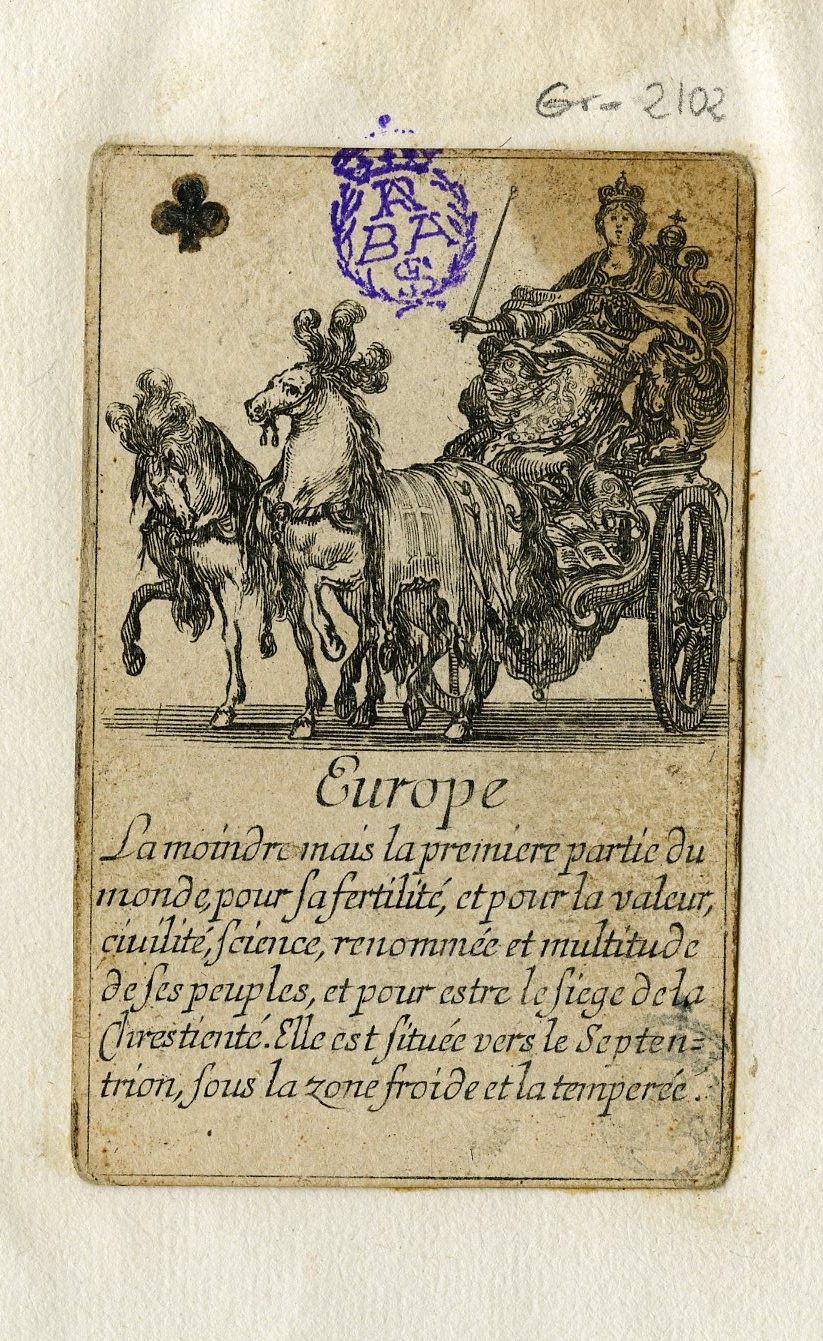 Gr- 2102
RA
BA
SF
Europe
La moindre mais la premiere partie du
monde, pour sa fertilité, et pour la valeur,
ciuilité, science, renommée et multitude
de ses peuples, et pour estre le siege de la
Chrestienté. Elle est située vers le Septen=
trion, sous la zone froide et la temperée.